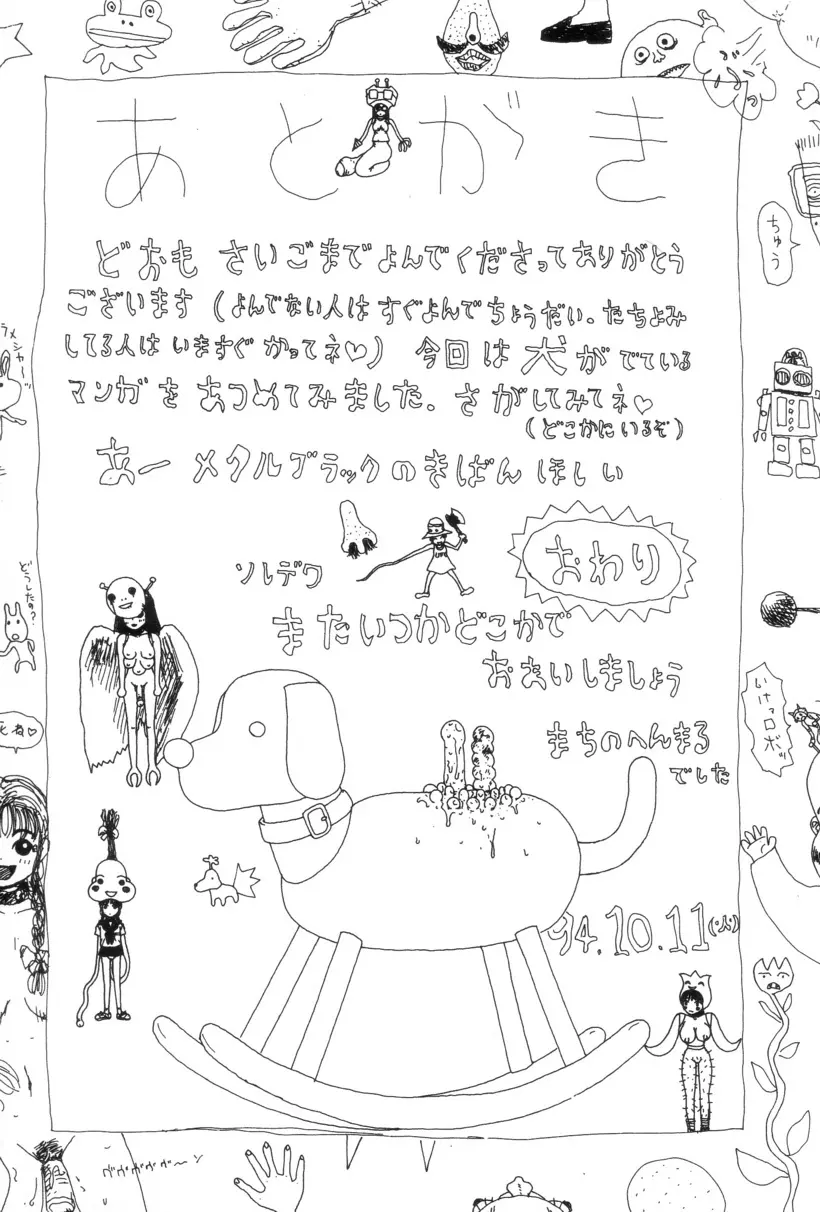 あとがき
どおも さいごまでよんでくださってありがとう
ございます (よんでない人は すぐよんでちょうだい、たちよみ
してる人は いますぐ かってネ♡) 今回は 犬がでている
マンガを あつめてみました。 さがしてみてネ♡
(どこかにいるぞ)
あー メタルブラックのきばん ほしい
おわり
ソレデワ
またいつかどこかで
おあいしましょう
まちのへんまる
でした
94.10.11(火)
ちゅう
どうしたの?
死ね♡
いけっロボッ
ヴヴヴヴヴ〜ン